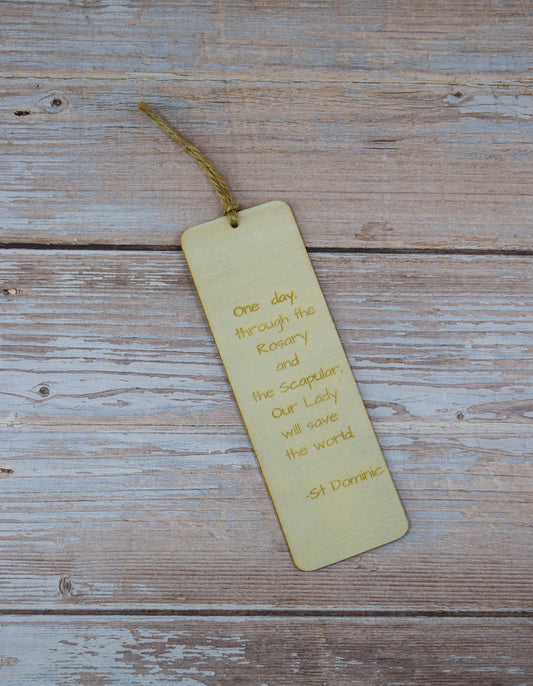 One day,
through the
Rosary
and
the Scapular,
Our Lady
will save
the world.
-St Dominic